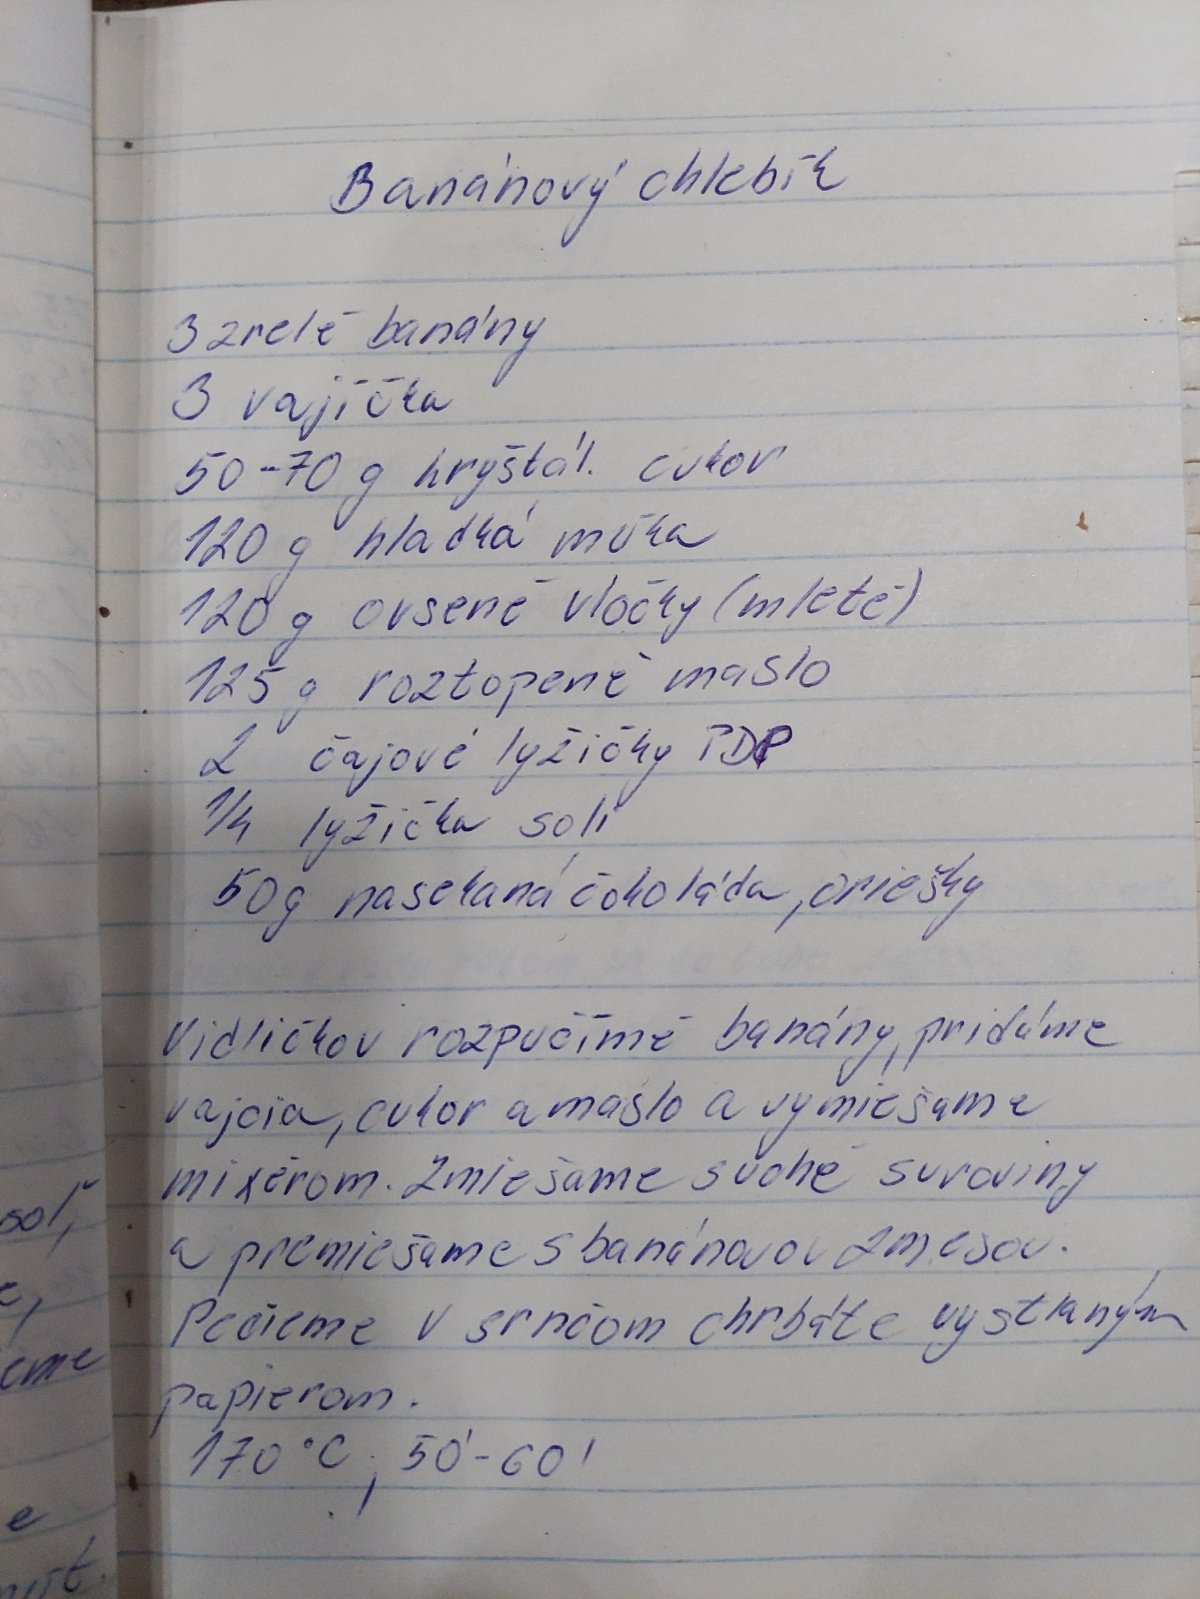 Banánový chlebík
3 zrelé banány
3 vajíčka
50-70 g kryštál. cukor
120 g hladká múka
120 g ovsené vločky (mleté)
125 g roztopené maslo
2 čajové lyžičky PDP
1/4 lyžička soli
50g nasekaná čokoláda, oriešky
Vidličkou rozpučíme banány, pridáme
vajcia, cukor a maslo a vymiešame
mixérom. Zmiešame suché suroviny
a premiešame s banánovou zmesou.
Pečieme v srnčom chrbáte vystlaným
papierom.
170 °C, 50'-60'
soľ,
e,
eme
e